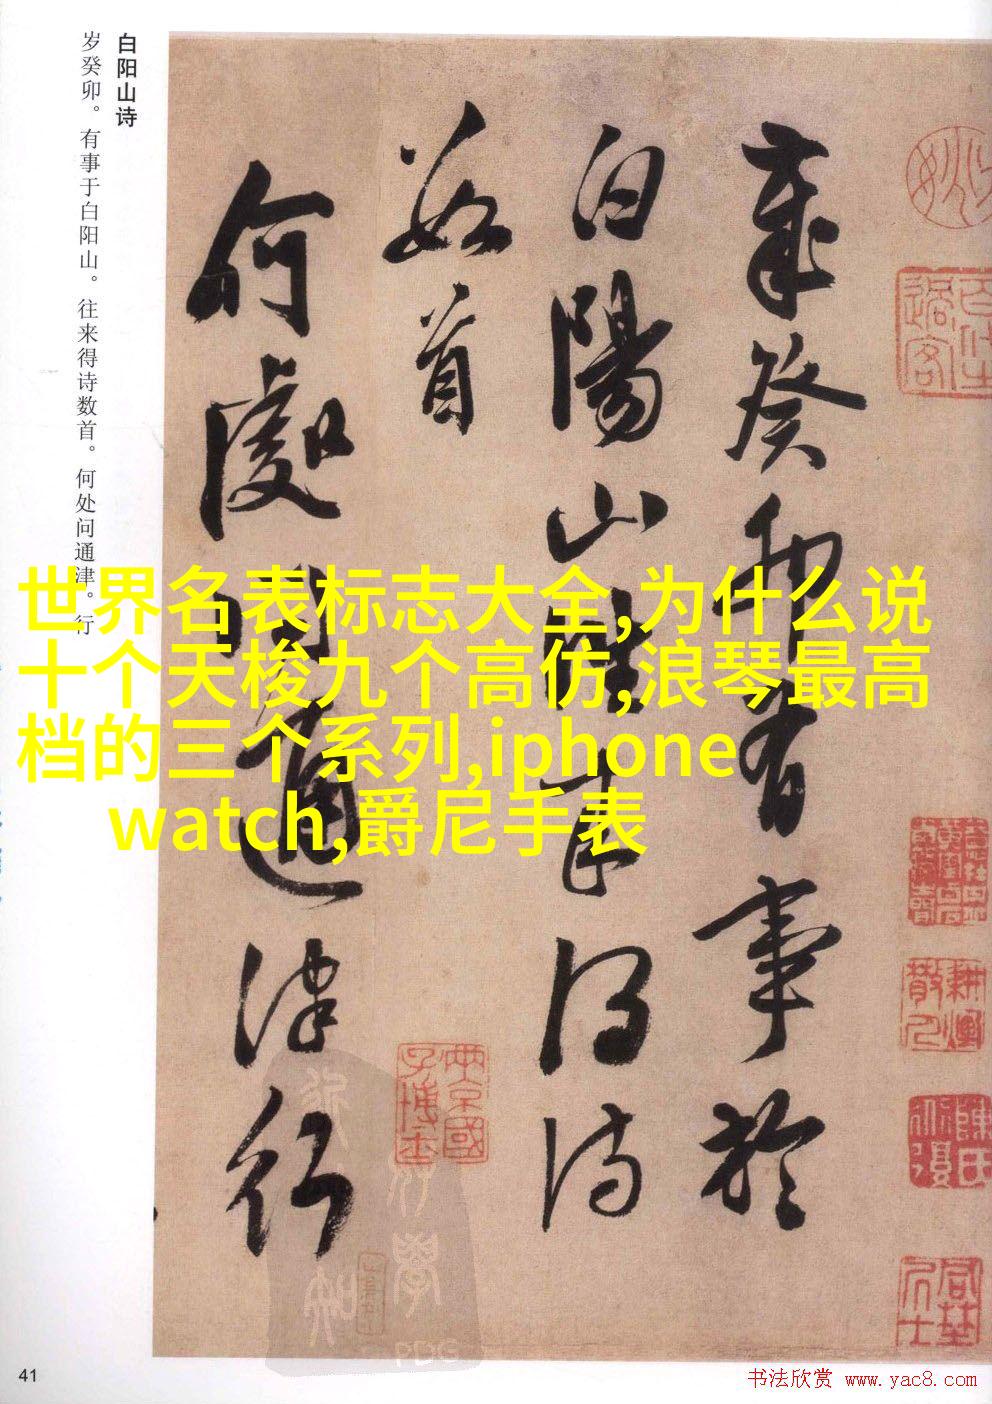 白阳山诗
岁癸卯。有事于白阳山。往来得诗数首。何处问通津。行
歲癸卯有事於
白陽山往来得诗
数首
何處问通津行
世界名表标志大全,为什么说
十个天梭九个高仿,浪琴最高
档的三个系列,iphone
watch,爵尼手表
41
书法欣赏 www.yac8.com